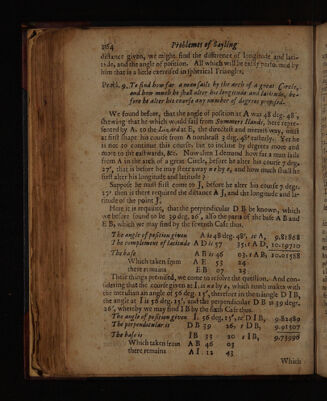 264 Problemes of Sayling
distance given, we might find the difference of longitude and lati-
tude, and the angle of position. All which will be easily performed by
him that is a little exercised in spherical Triangles.
Probl. 9. To find how far a man sails by the arch of a great Circle,
and how much he shall alter his longitude and latitude, be-
fore he alter his course any number of degrees proposed.
We found before, that the angle of position at A was 48 deg. 48',
shewing that he which would sail from Summers Ilands, here repre-
sented by A, to the Lizard at E, the directest and neerest way, must
at first shape his course from A northeast 3 deg. 48' easterly: Yet he
is not to continue this course, but to incline by degrees more and
more to the eastwards, &c. Now then I demand how far a man sails
from A in the arch of a great Circle, before he alter his course 7 deg.
27', that is before he may steer away n e by e, and how much shall he
first alter his longitude and latitude?
Suppose he must first come to I, before he alter his course 7 degr.
27' then is there required the distance A I, and the longitude and la-
titude of the point I.
Here it is requisite, that the perpendicular D B be known, which
we before found to be 39 deg. 26', also the parts of the base A B and
E B, which we may find by the seventh Case thus.
The angle of position given A is 48 deg. 48', sc A, 9.81868
The complement of latitude A D is 57 35. t A D, 10.19720
The base A B is 46 03. t A B, 10.01588
Which taken from A E 53 24.
there remains E B 07 23.
These things premised, we come to resolve the question. And con-
sidering that the course given at I, is n e by e, which rumb makes with
the meridian an angle of 56 deg. 15', therefore in the triangle D I B,
the angle at I is 56 deg. 15', and the perpendicular D B is 39 degr.
26', whereby we may find I B by the sixth Case thus.
The angle of position given I, 56 deg. 15', tc D I B, 9.82489
The perpendicular is D B 39 26, t D B, 9.91507
The base is I B 33 20 s I B, 9.73996
Which taken from A B 46 03
there remains A I 12 43
Which